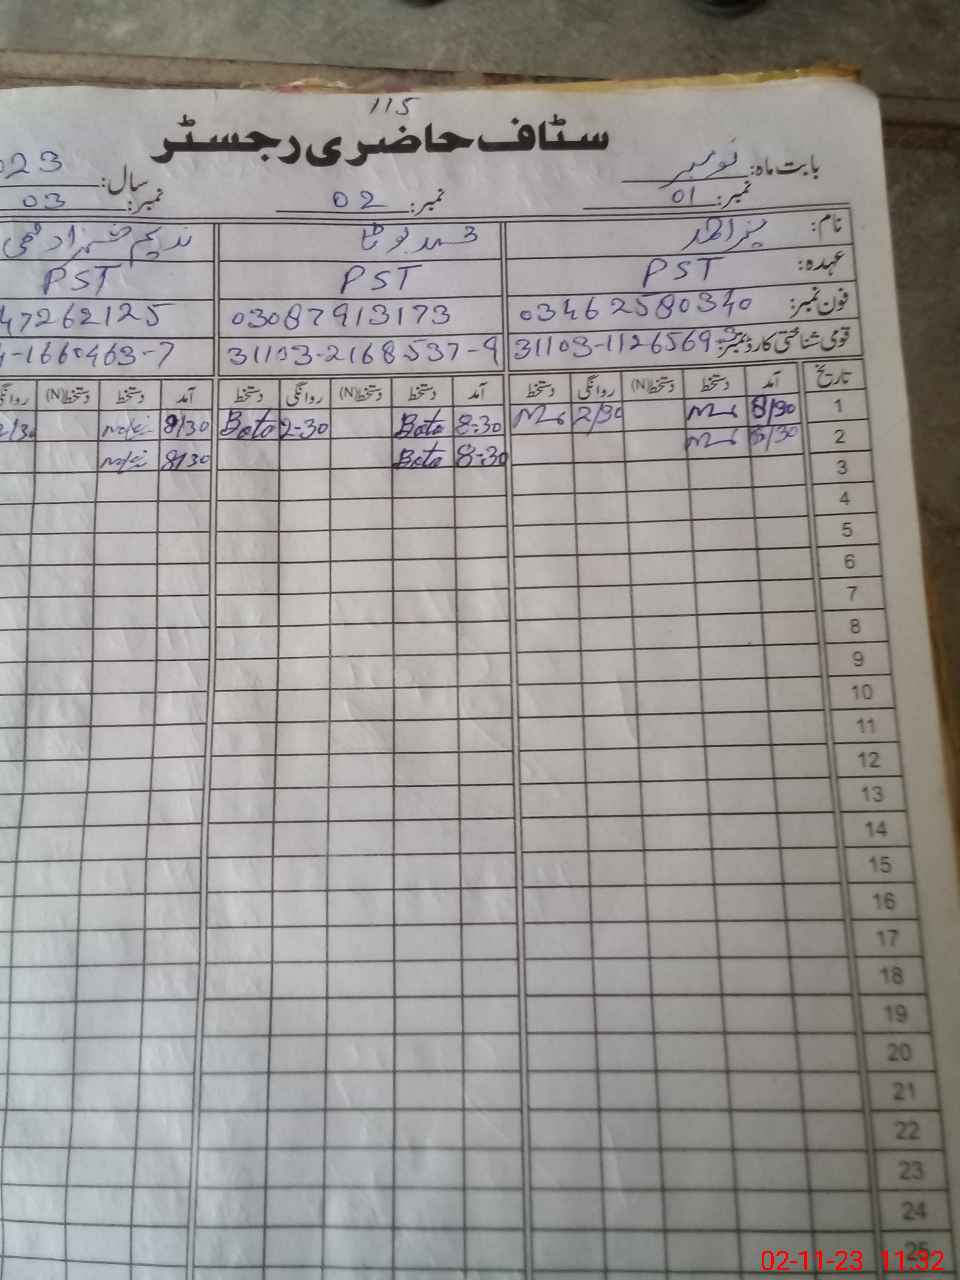 115
سٹاف حاضری رجسٹر
بابت ماہ: نومبر سال: 023
نمبر: 01 نمبر: 02 نمبر: 03
نام: محمد بوٹا ندیم شہزاد
عہدہ: PST PST PST
فون نمبر: 03462580340 03087913173 47262125
قومی شناختی کارڈ نمبر: 31103-1126569 31103-2168537-9 -1660463-7
تاریخ آمد دستخط دستخط(N) روانگی دستخط آمد دستخط دستخط(N) روانگی دستخط آمد دستخط دستخط(N) روانگی
1 8/30 2/30 8-30 Bota 2-30 Bota 8/30 2/30
2 8/30 8-30 Bota 8/30
3
4
5
6
7
8
9
10
11
12
13
14
15
16
17
18
19
20
21
22
23
24
25
02-11-23 11:32